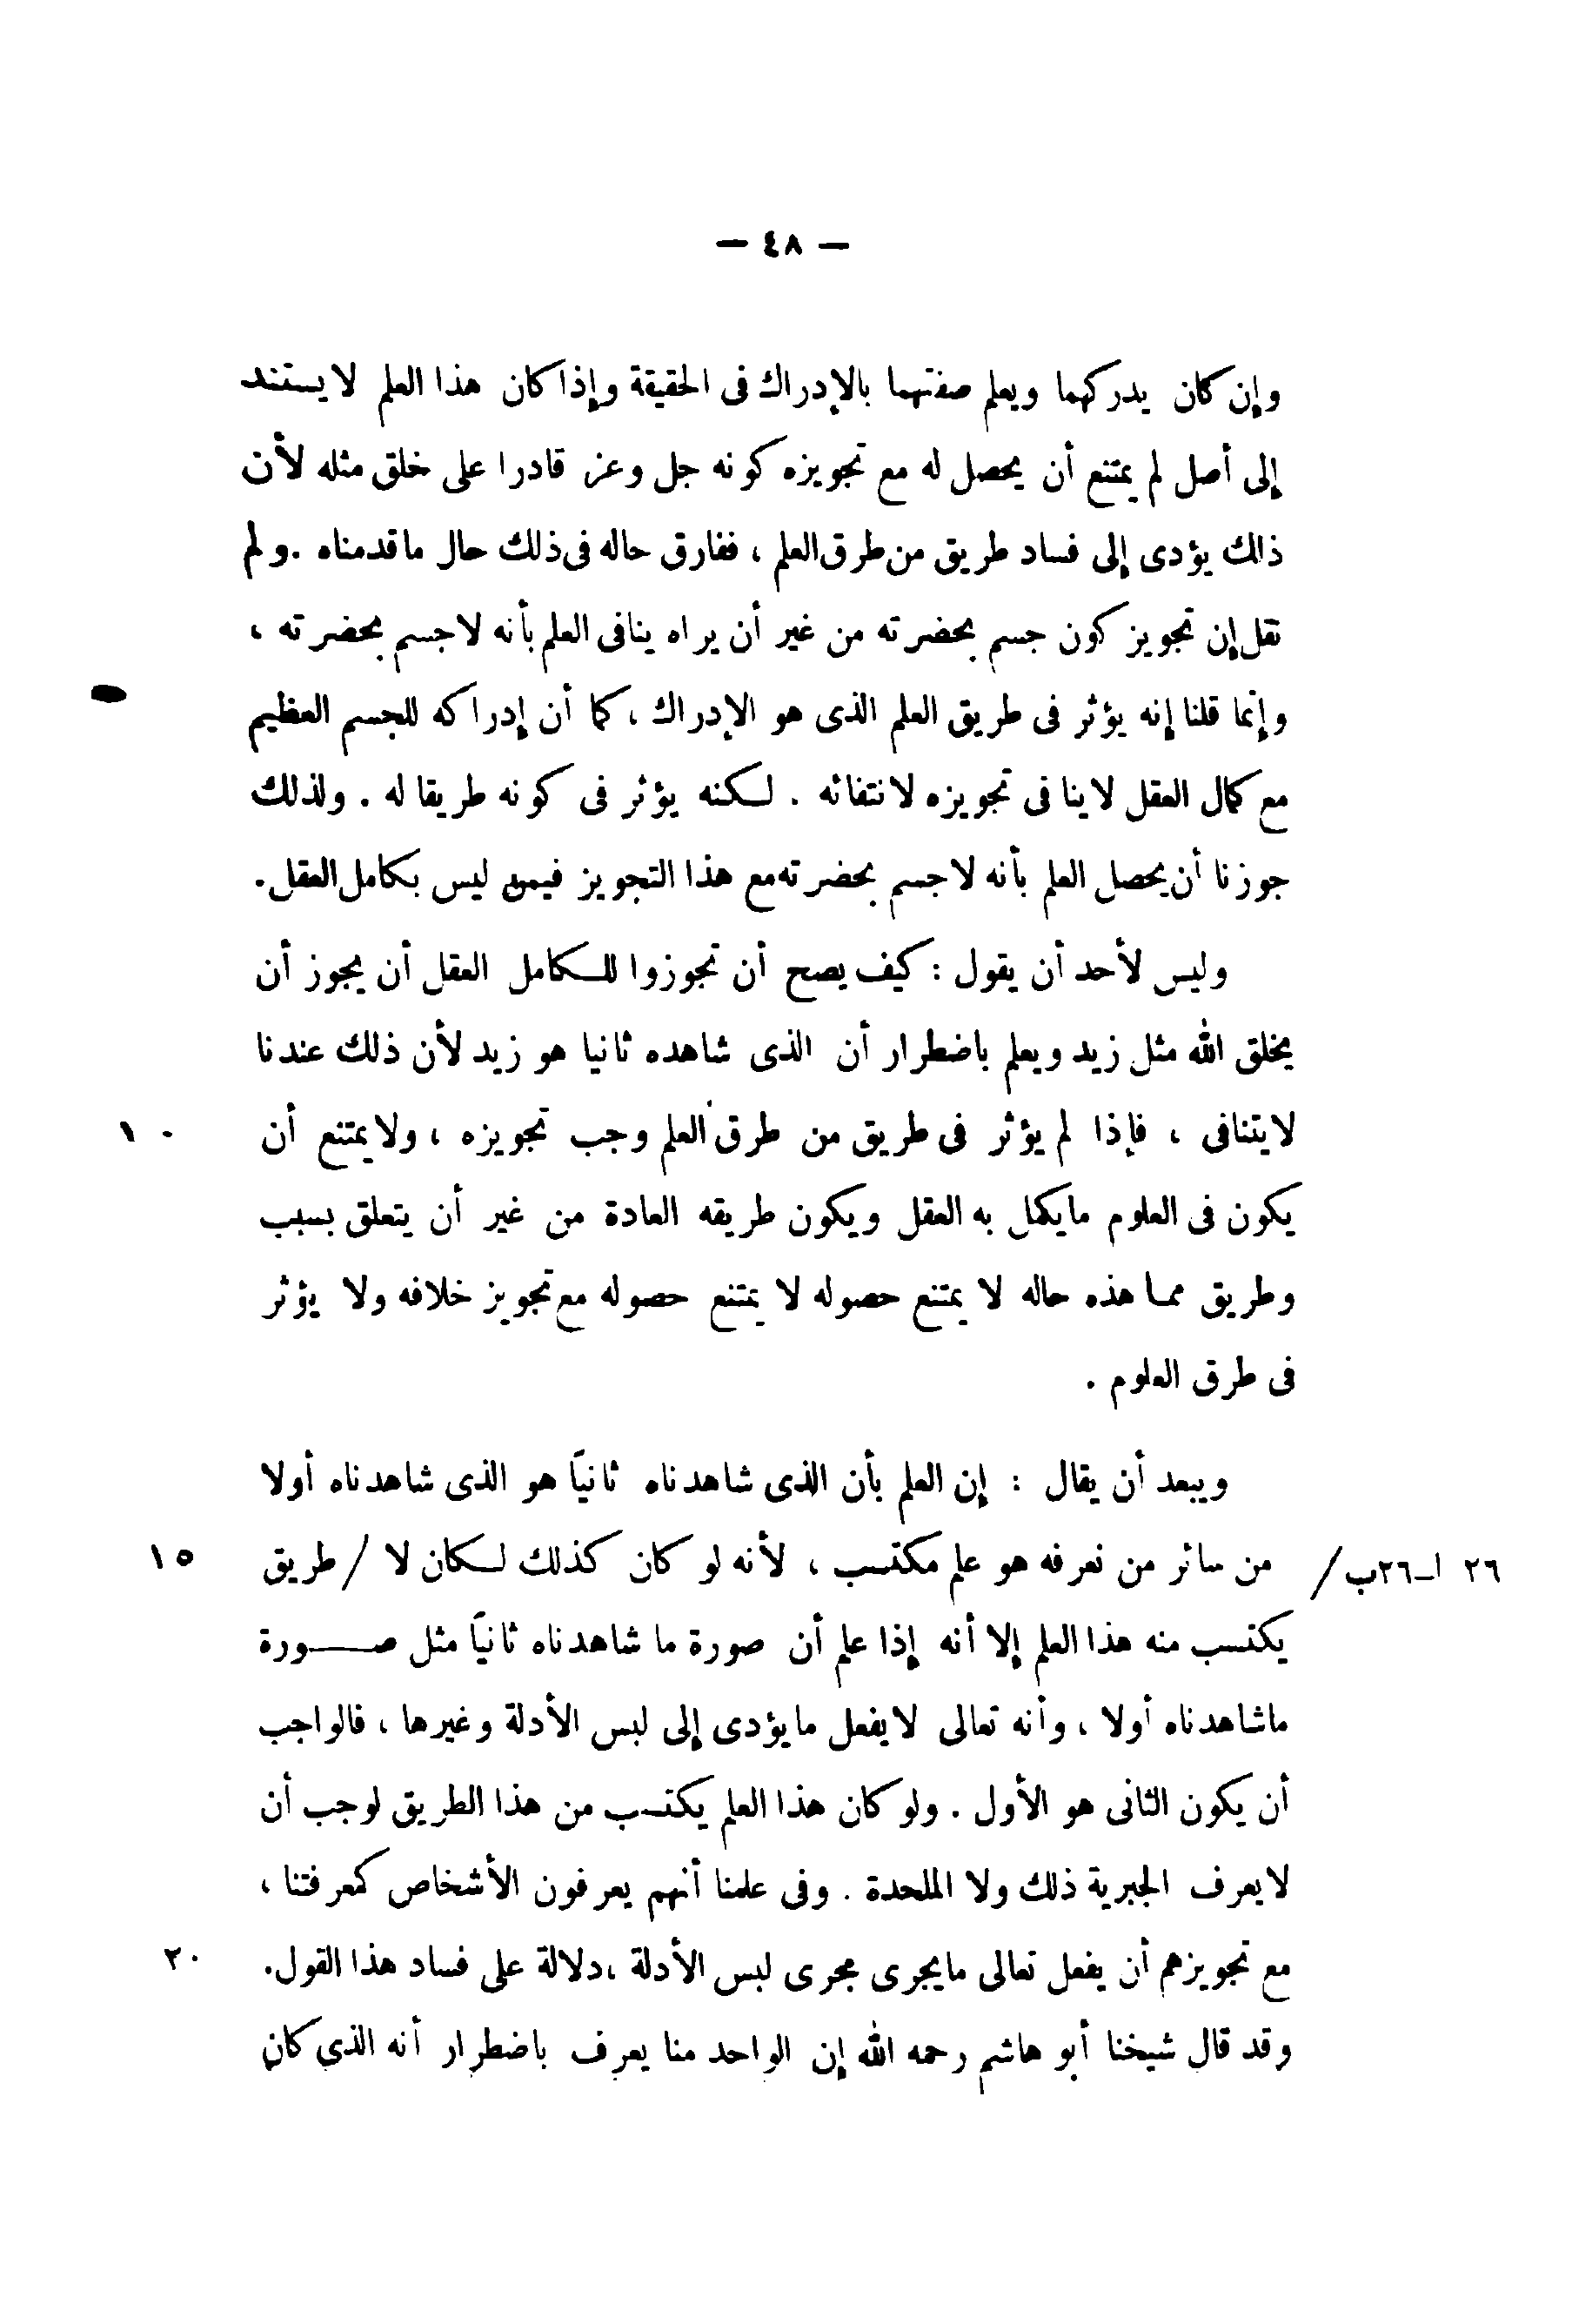 — ٤٨ —
وإن كان يدركهما ويعلم صفتهما بالإدراك فى الحقيقة وإذا كان هذا العلم لا يستند
إلى أصل لم يمتنع أن يحصل له مع تجويزه كونه جل وعز قادرا على خلق مثله لأن
ذلك يؤدى إلى فساد طريق من طرق العلم ، ففارق حاله فى ذلك حال ما قدمناه . ولم
نقل إن تجويز كون جسم بحضرته من غير أن يراه ينافى العلم بأنه لا جسم بحضرته ،
وإنما قلنا إنه يؤثر فى طريق العلم الذى هو الإدراك ، كما أن إدراكه للجسم العظيم
مع كمال العقل لا ينافى تجويزه لانتفائه . لكنه يؤثر فى كونه طريقا له . ولذلك
جوزنا أن يحصل العلم بأنه لا جسم بحضرته مع هذا التجويز فيمن ليس بكامل العقل .
وليس لأحد أن يقول : كيف يصح أن تجوزوا للكامل العقل أن يجوز أن
يخلق الله مثل زيد ويعلم باضطرار أن الذى شاهده ثانيا هو زيد لأن ذلك عندنا
لا يتنافى ، فإذا لم يؤثر فى طريق من طرق العلم وجب تجويزه ، ولا يمتنع أن ١٠
يكون فى العلوم ما يكمل به العقل ويكون طريقه العادة من غير أن يتعلق بسبب
وطريق مما هذه حاله لا يمتنع حصوله لا يمتنع حصوله مع تجويز خلافه ولا يؤثر
فى طرق العلوم .
ويبعد أن يقال : إن العلم بأن الذى شاهدناه ثانيًا هو الذى شاهدناه أولا
٢٦ ا-٢٦ب / من سائر من نعرفه هو علم مكتسب ، لأنه لو كان كذلك لكان لا / طريق ١٥
يكتسب منه هذا العلم إلا أنه إذا علم أن صورة ما شاهدناه ثانيًا مثل صورة
ما شاهدناه أولا ، وأنه تعالى لا يفعل ما يؤدى إلى لبس الأدلة وغيرها ، فالواجب
أن يكون الثانى هو الأول . ولو كان هذا العلم يكتسب من هذا الطريق لوجب أن
لا يعرف الجبرية ذلك ولا الملحدة . وفى علمنا أنهم يعرفون الأشخاص كمعرفتنا ،
مع تجويزهم أن يفعل تعالى ما يجرى مجرى لبس الأدلة ، دلالة على فساد هذا القول . ٢٠
وقد قال شيخنا أبو هاشم رحمه الله إن الواحد منا يعرف باضطرار أنه الذي كان